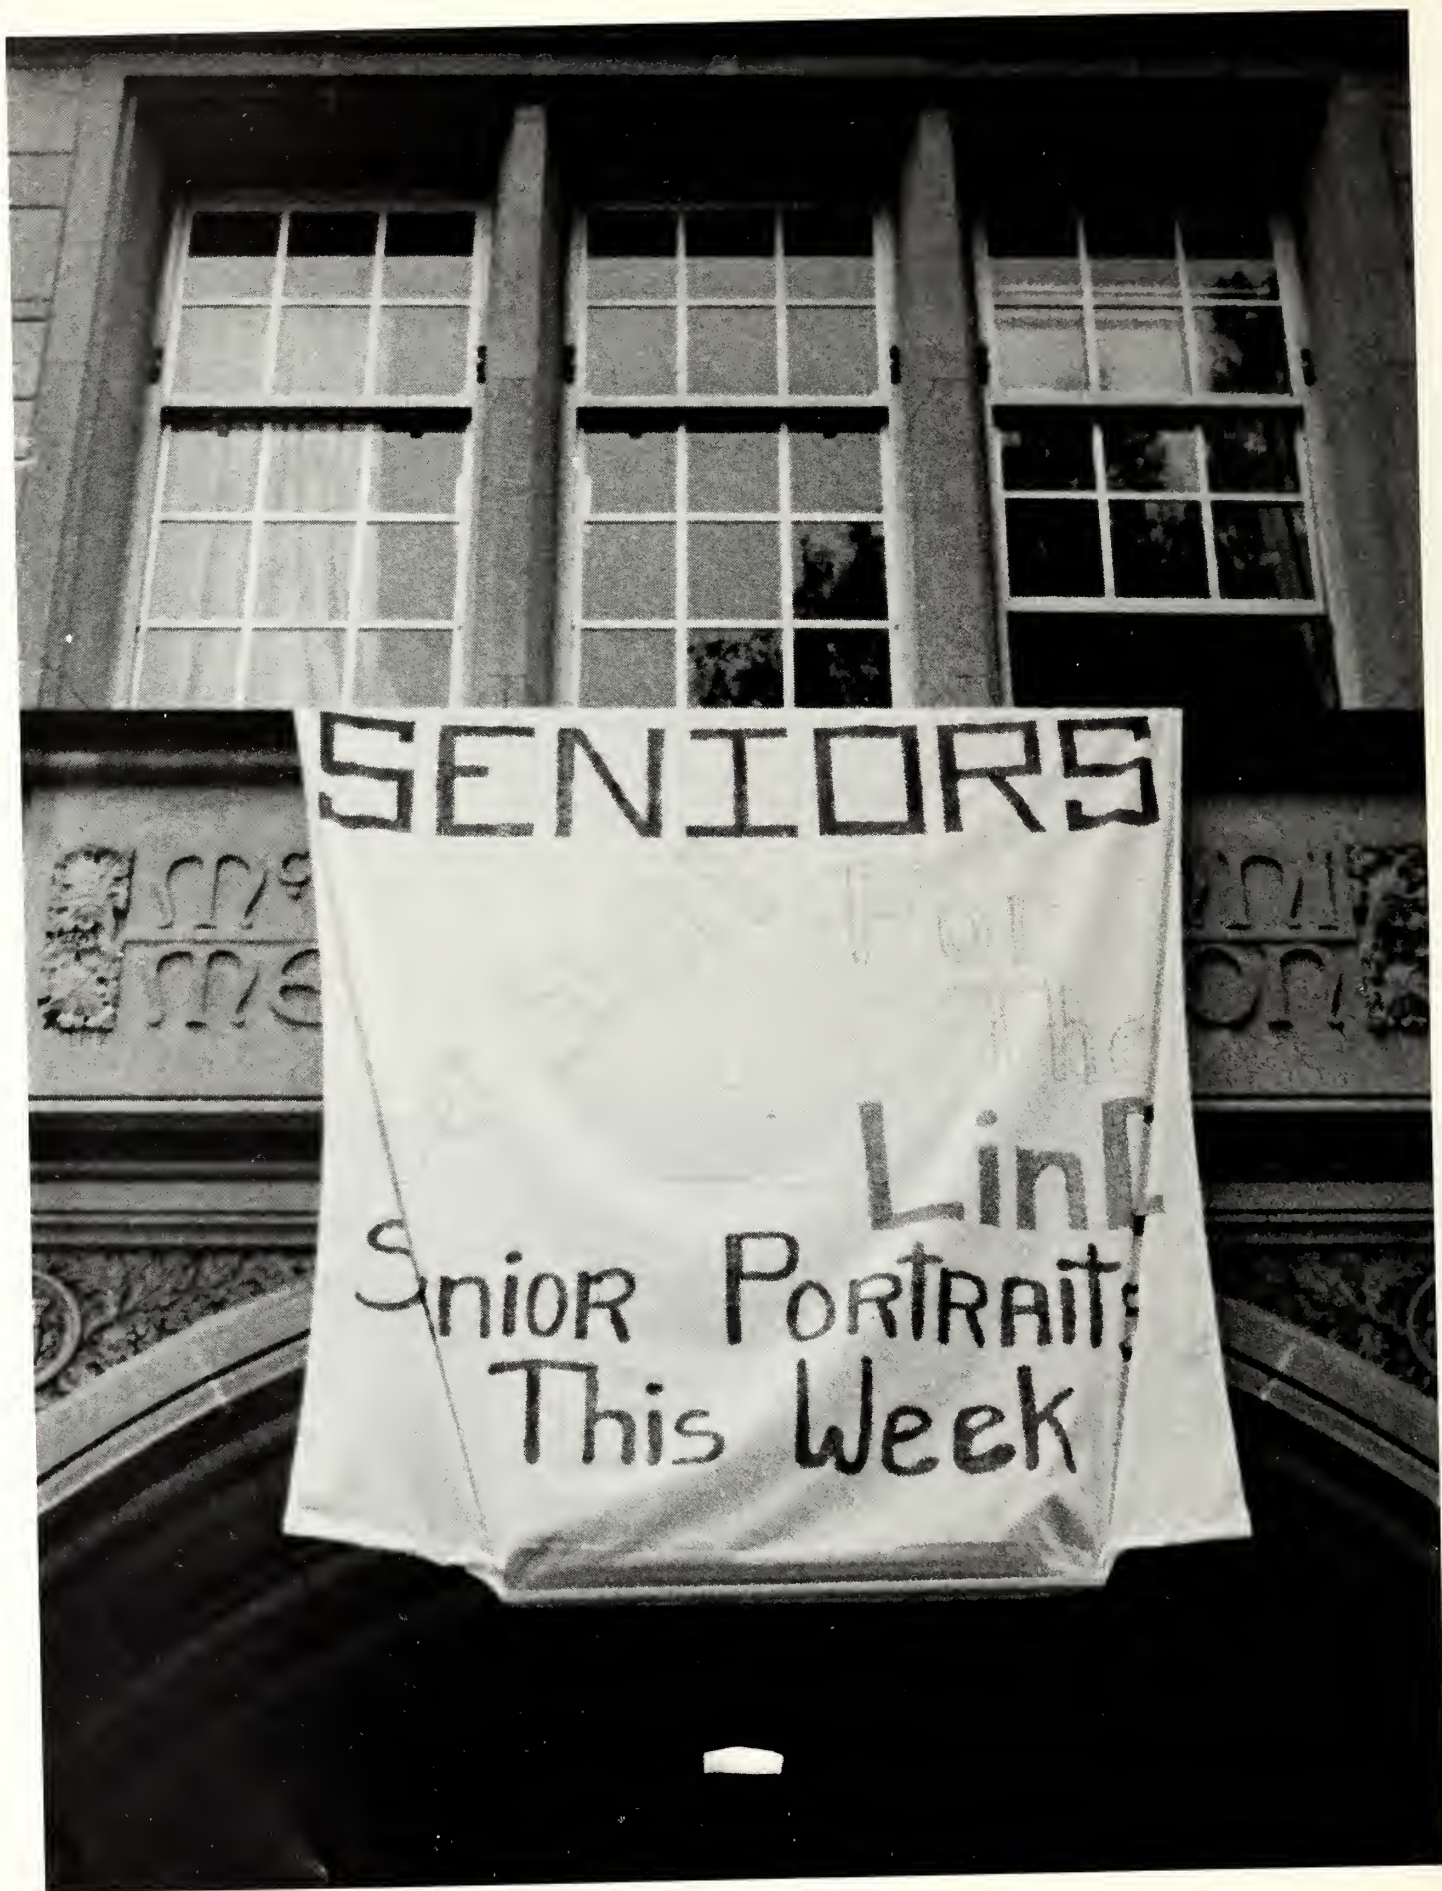 SENIORS
The
LinE
SnioR PoRtRAits
This Week